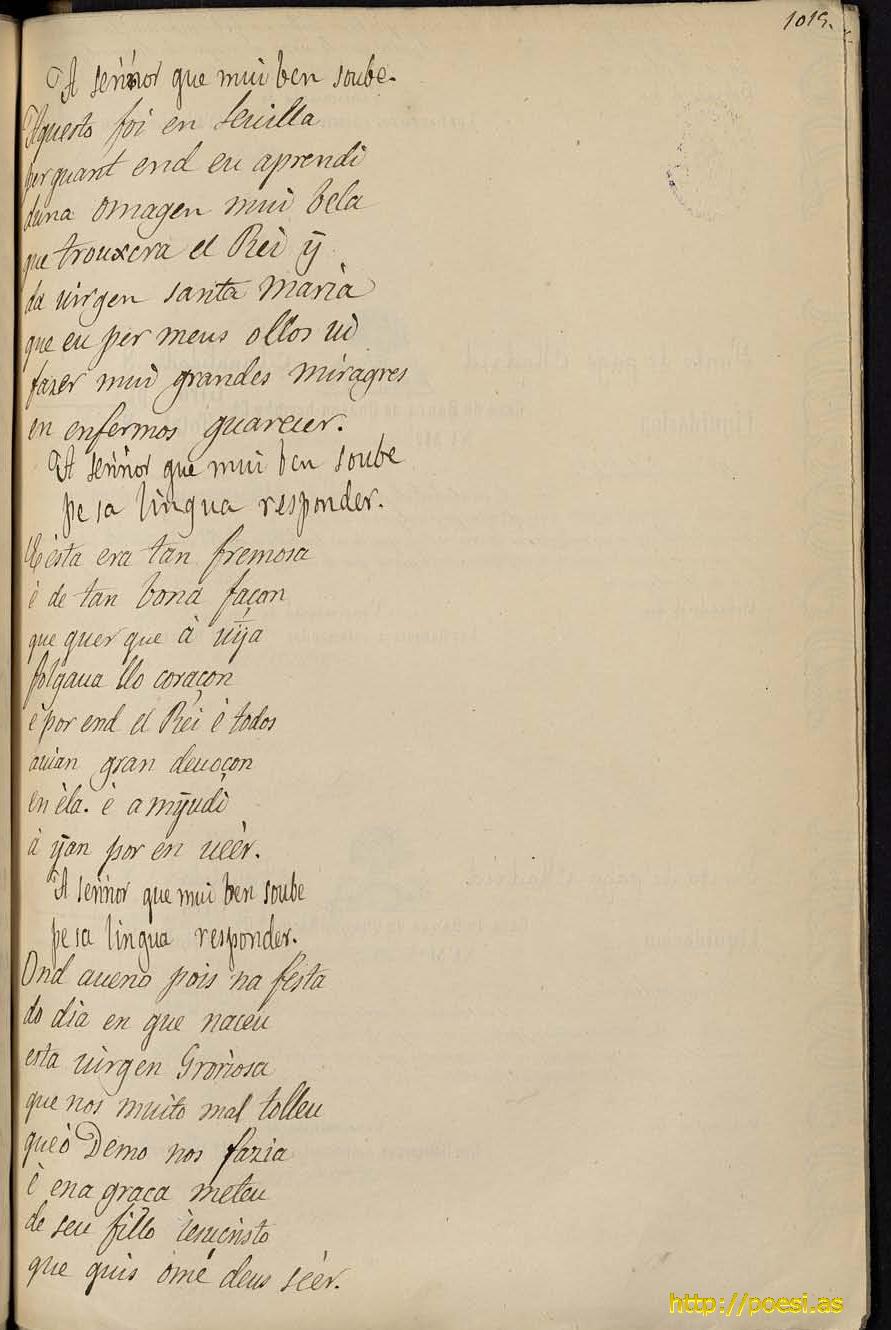 1019.
A sennor que mui ben soube.
Aquesto foi en Seuilla
per quant end eu aprendi
duna omagen mui bela
que trouxera el Rei ỹ
da uirgen santa maria
que eu per meus ollos ui
fazer mui grandes miragres
en enfermos guarecer.
A sennor que mui ben soube
pe sa lingua responder.
E èsta era tan fremosa
è de tan bona façon
que quer que à uỹa
folgaua llo coraçon
è por end el Rei è todos
auian gran deuoçon
en èla. è amỹudi
à ỹan por en ueèr.
A sennor que mui ben soube
pe sa lingua responder.
Ond aueno pois na festa
do dia en que naceu
esta uirgen Groriosa
que nos muito mal tolleu
que ò Demo nos fazia
è ena graça meteu
de seu fillo iesucristo
que quis omé deus seèr.
http://poesi.as